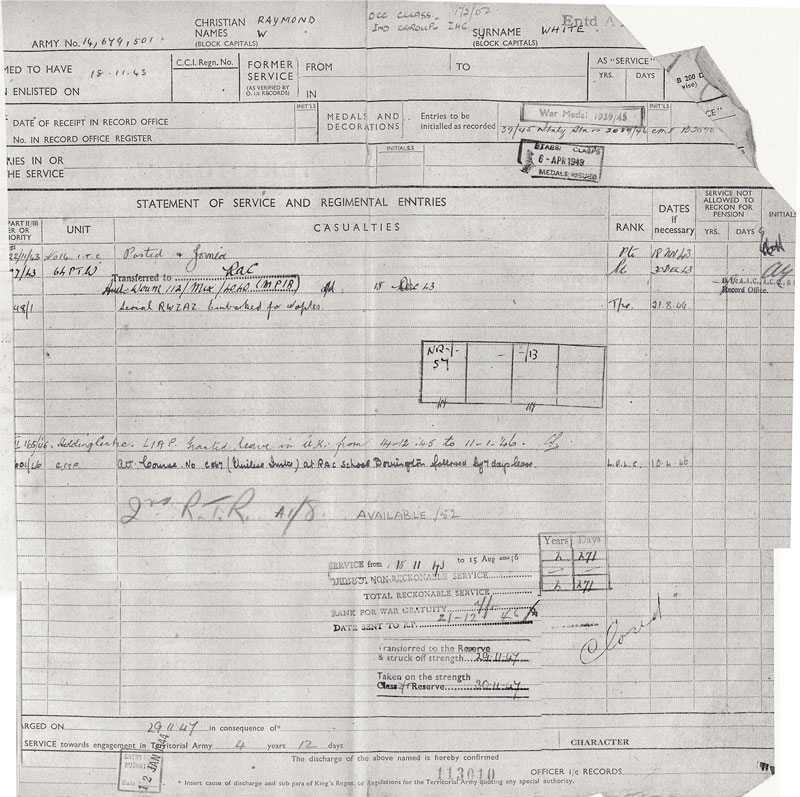 OCC CLASS. 172/02
IND GROUP. ZHG
Entd A
ARMY No. 14,679,501
CHRISTIAN NAMES RAYMOND W
(BLOCK CAPITALS)
SURNAME WHITE
(BLOCK CAPITALS)
MED TO HAVE 18.11.43
ENLISTED ON
C.C.I. Regn. No.
FORMER SERVICE
(AS VERIFIED BY O. i/c RECORDS)
FROM
TO
IN
AS "SERVICE"
YRS. DAYS
B 200 D
vise)
CE"
DATE OF RECEIPT IN RECORD OFFICE
No. IN RECORD OFFICE REGISTER
INIT'LS
MEDALS AND DECORATIONS
Entries to be initialled as recorded
War Medal 1939/45
INIT'LS
RIES IN OR
THE SERVICE
INITIALS
STARS CLASPS
6-APR 1949
MEDALS
STATEMENT OF SERVICE AND REGIMENTAL ENTRIES
PART II/III
ER OR
HORITY
UNIT
CASUALTIES
RANK
DATES if necessary
SERVICE NOT ALLOWED TO RECKON FOR PENSION
YRS. DAYS
INITIALS
22/11/43 I.T.C Posted & Joined Pte 18 Nov 43
77/43 64 P.T.W Transferred to RAC 30 DEC 43
18 Dec 43
Record Office.
48/1 Serial RWZAZ. Embarked for Naples. Tpr. 21.8.44
NR-1-57 - -/13
165/45. Holding Centre. LIAP. Granted leave in U.K. from 14-12-45 to 11-1-46.
C.M.F. Att Course. No C867 at RAC School Bovington followed by 7 days leave. 10.4.46
2nd R.T.R. A1/8 AVAILABLE/52
Years Days
SERVICE from 18 11 43 to 15 Aug 46 2 271
DEDUCT NON-RECKONABLE SERVICE
TOTAL RECKONABLE SERVICE 2 271
RANK FOR WAR GRATUITY
DATE SENT TO R.P. 21-12
Closed
Transferred to the Reserve
& struck off strength 29.11.47
Taken on the strength
Class Reserve 30.11.47
ARGED ON 29.11.47 in consequence of*
SERVICE towards engagement in Territorial Army 4 years 12 days
CHARACTER
12 JAN 1944
The discharge of the above named is hereby confirmed
113010
OFFICER i/c RECORDS
* Insert cause of discharge and sub para of King's Regns. or Regulations for the Territorial Army quoting any special authority.